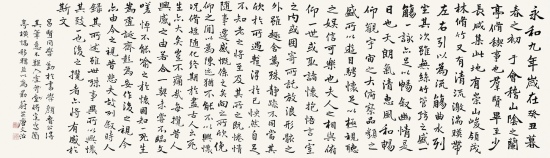 永和九年歲在癸丑暮
春之初會于會稽山陰之蘭
亭脩禊事也羣賢畢至少
長咸集此地有崇山峻領茂
林脩竹又有清流激湍暎帶
左右引以為流觴曲水列坐
其次雖無絲竹管弦之盛一
觴一詠亦足以暢叙幽情是
日也天朗氣清惠風和暢仰
觀宇宙之大俯察品類之
盛所以遊目騁懷足以極視聽
之娛信可樂也夫人之相與俯
仰一世或取諸懷抱悟言一室
之內或因寄所託放浪形骸之
外雖趣舍萬殊靜躁不同當其
欣於所遇暫得於己快然自足
不知老之將至及其所之既惓情
隨事遷感慨係之矣向之所欣俛
仰之間以為陳迹猶不能不以之興懷
況脩短隨化終期於盡古人云死
生亦大矣豈不痛哉每攬昔人
興感之由若合一契未嘗不臨文
嗟悼不能喻之於懷固知一死生
為虛誕齊彭殤為妄作後之視今
亦由今之視昔悲夫故列叙時人
錄其所述雖世殊事異所以興懷
其致一也後之攬者亦將有感於
斯文